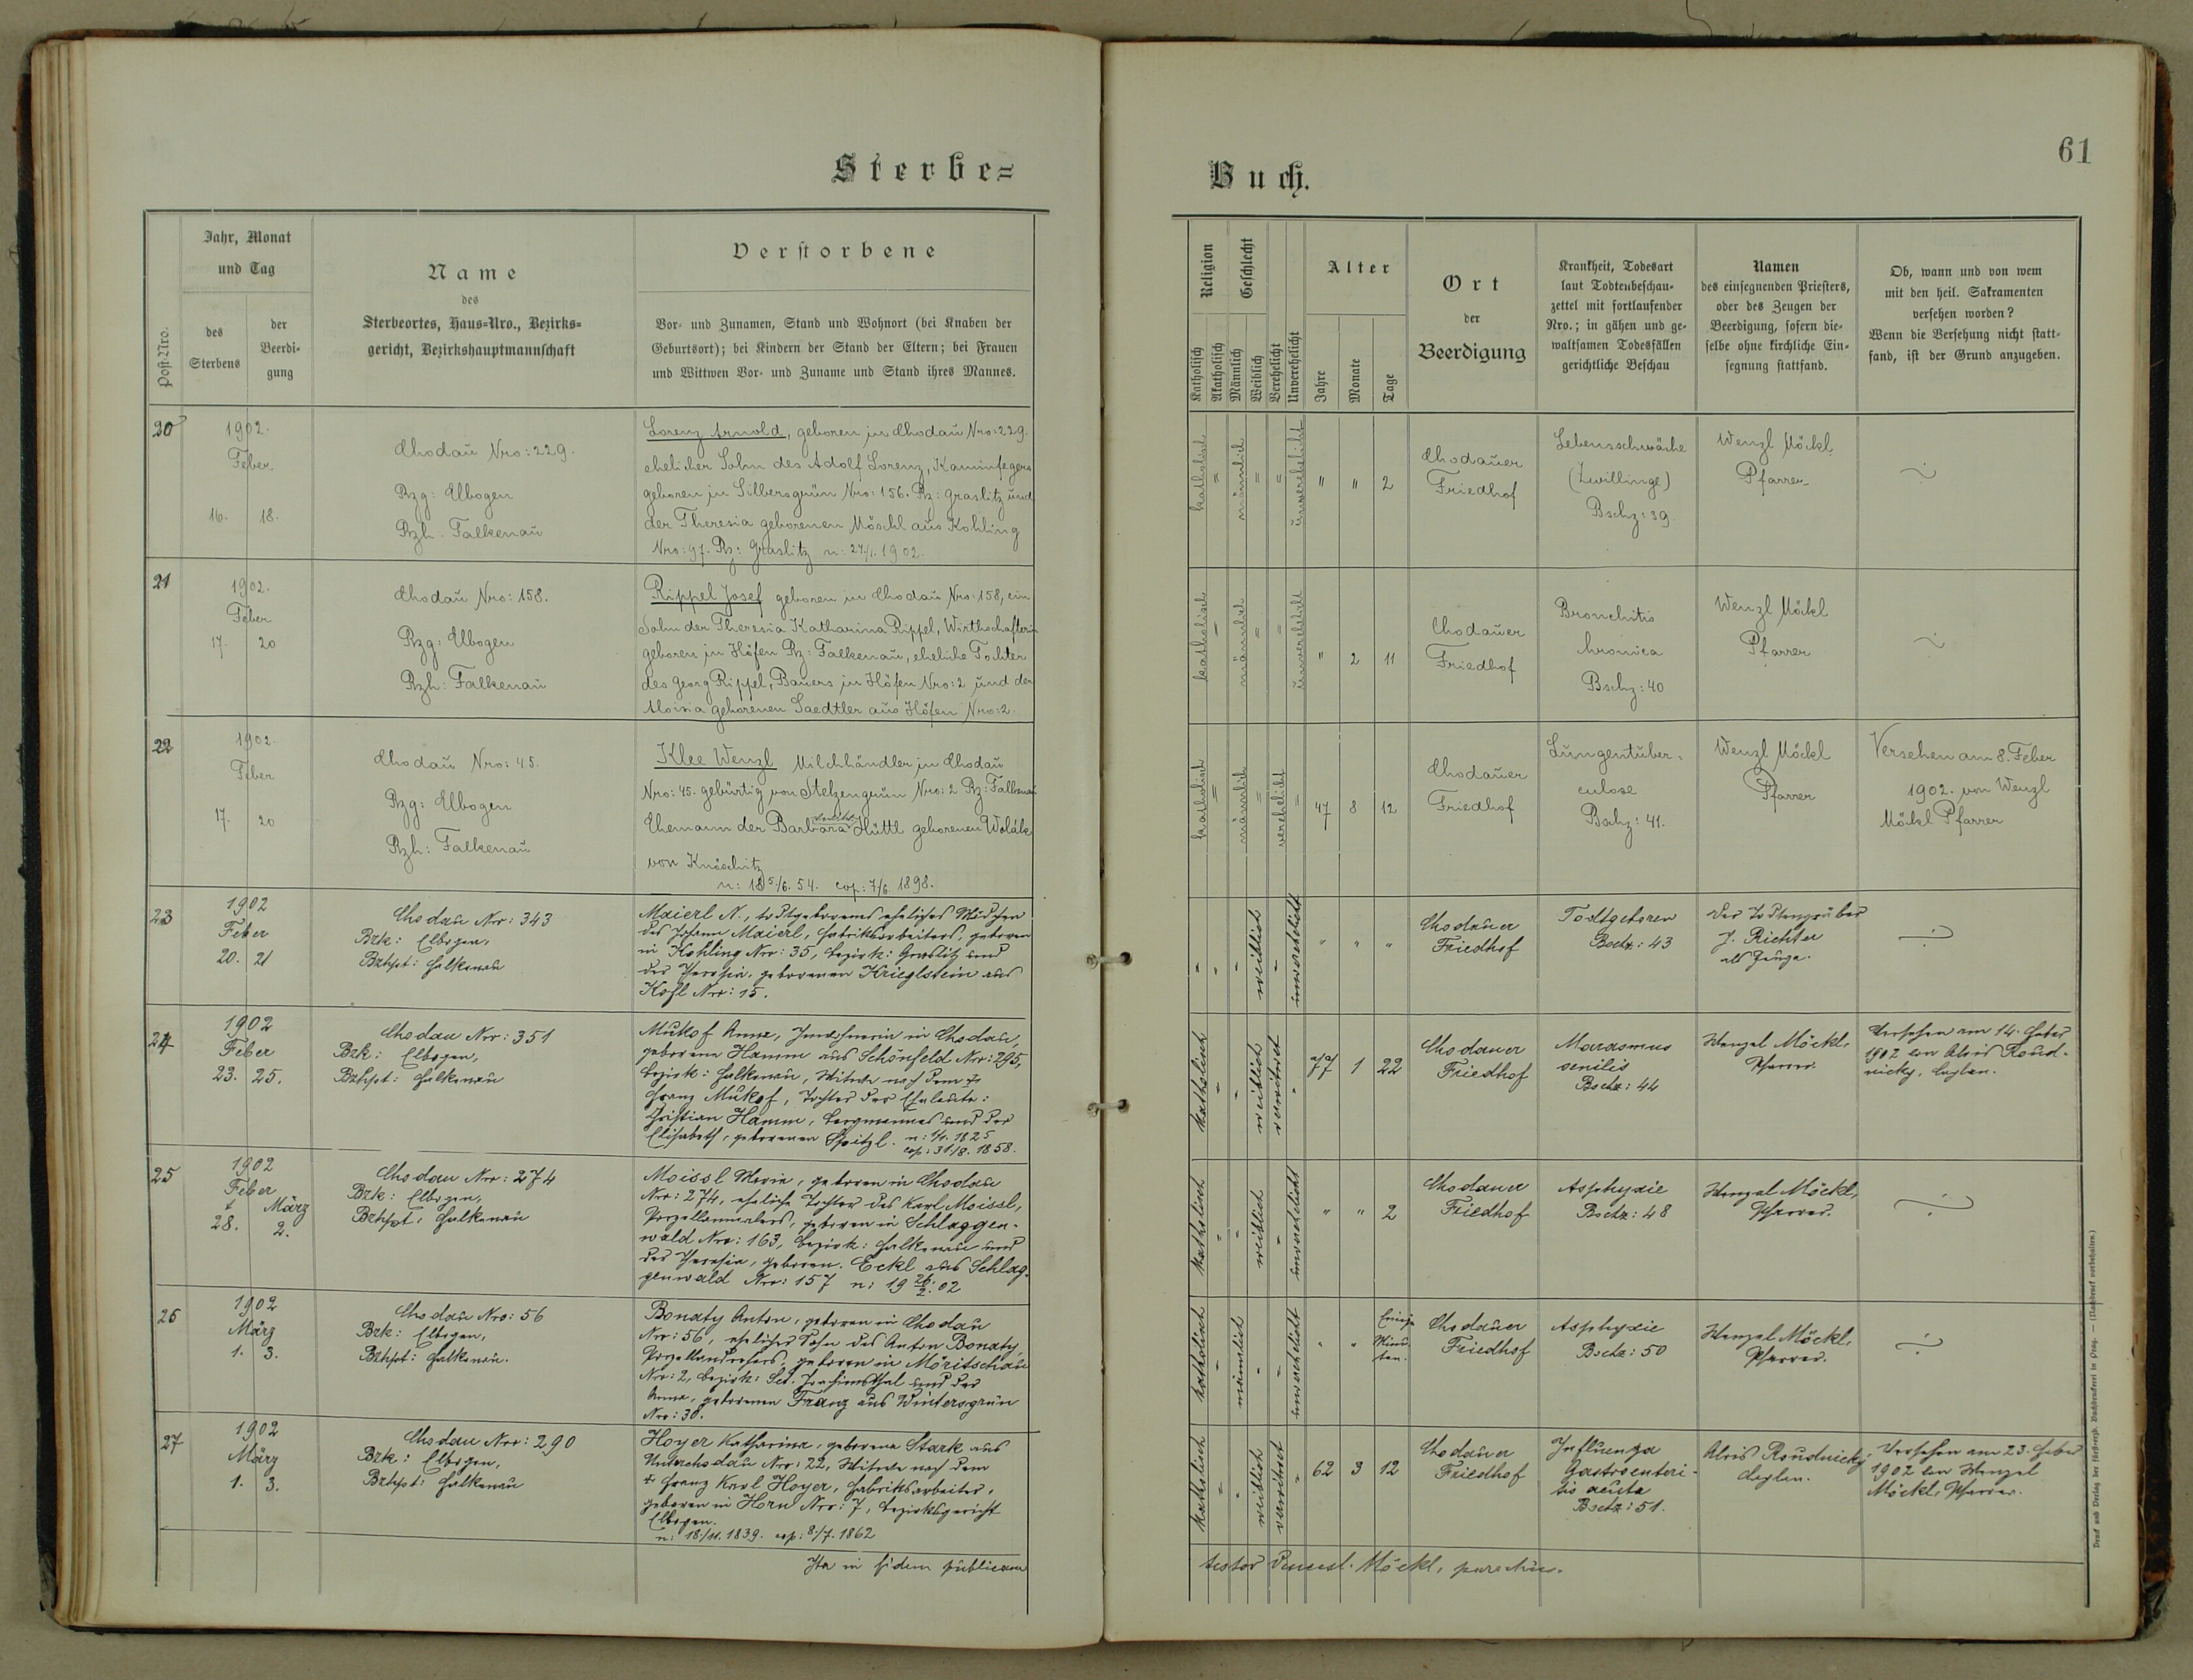 Sterbe=
Buch.
61
Post-Nro.
Jahr, Monat
und Tag
des
Sterbens
der
Beerdi-
gung
Name
des
Sterbeortes, Haus=Nro., Bezirks=
gericht, Bezirkshauptmannschaft
Verstorbene
Vor- und Zunamen, Stand und Wohnort (bei Knaben der
Geburtsort); bei Kindern der Stand der Eltern; bei Frauen
und Wittwen Vor- und Zuname und Stand ihres Mannes.
Religion
Katholisch
Akatholisch
Geschlecht
Männlich
Weiblich
Verehelicht
Unverehelicht
Alter
Jahre
Monate
Tage
Ort
der
Beerdigung
Krankheit, Todesart
laut Todtenbeschau-
zettel mit fortlaufender
Nro.; in gähen und ge-
waltsamen Todesfällen
gerichtliche Beschau
Namen
des einsegnenden Priesters,
oder des Zeugen der
Beerdigung, sofern die-
selbe ohne kirchliche Ein-
segnung stattfand.
Ob, wann und von wem
mit den heil. Sakramenten
versehen worden?
Wenn die Versehung nicht statt-
fand, ist der Grund anzugeben.
20
1902.
Feber
16. 18.
Chodaŭ Nro: 229.
Bzg: Elbogen
Bzh: Falkenaŭ
Lorenz Arnold, geboren in Chodaŭ Nro: 229.
ehelicher Sohn des Adolf Lorenz, Kaminfegers
geboren in Silbersgrün Nro: 156. Bz: Graslitz ŭnd
der Theresia geborenen Möschl aŭs Kohling
Nro: 97. Bz: Graslitz n: 27/1. 1902.
katholisch = männlich = = ŭnverehelicht
" " 2
Chodaŭer
Friedhof
Lebensschwäche
(Zwillinge)
Bschz: 39
Wenzl Möckl
Pfarrer
21
1902.
Feber
17. 20
Chodaŭ Nro: 158.
Bzg: Elbogen
Bzh: Falkenaŭ
Rippel Josef geboren in Chodaŭ Nro: 158, ein
Sohn der Theresia Katharina Rippel, Wirthschafterin
geboren in Höfen Bz: Falkenaŭ, eheliche Tochter
des Georg Rippel, Baŭers in Höfen Nro: 2 ŭnd der
Aloisia geborenen Saedtler aŭs Höfen Nro: 2.
katholisch = männlich = = ŭnverehelicht
" 2 11
Chodaŭer
Friedhof
Bronchitis
hronica
Bschz: 40
Wenzl Möckl
Pfarrer
22
1902.
Feber
17. 20
Chodaŭ Nro: 45.
Bzg: Elbogen
Bzh: Falkenaŭ
Klee Wenzl Milchhändler in Chodaŭ
Nro: 45. gebürtig von Stelzengrün Nro: 2 Bz: Falkenaŭ
Ehemann der Barbara Hüttl geborenen Woläk
von Knöschitz
n: 18 5/6. 54. cop: 7/6 1898.
katholisch = männlich = verehelicht =
47 8 12
Chodaŭer
Friedhof
Lŭngentŭber-
culose
Bschz: 41.
Wenzl Möckl
Pfarrer
Versehen am 8. Feber
1902. von Wenzl
Möckl Pfarrer
23
1902
Feber
20. 21
Chodaŭ Nro: 343
Bzk: Elbogen,
Bzhpt: Falkenaŭ
Maierl N., todtgeborenes eheliches Mädchen
des Johann Maierl, Fabriksarbeiters, geboren
in Kohling Nro: 35, Bezirk: Graslitz ŭnd
der Theresia, geborenen Krieglstein aŭs
Kohl Nro: 15.
- - - weiblich - ŭnverehelicht
" " "
Chodaŭer
Friedhof
Todtgeboren
Bschz: 43
Der Todtengräber
J. Richter
als Zeŭge.
24
1902
Feber
23. 25.
Chodaŭ Nro: 351
Bzk: Elbogen,
Bzhpt: Falkenaŭ
Mŭkof Anna, Inwohnerin in Chodaŭ,
geborene Hamm aŭs Schönfeld Nro: 295,
Bezirk: Falkenaŭ, Witwe nach dem †
Franz Mŭkof, Tochter der Eheleŭte:
Christian Hamm, Bergmannes ŭnd der
Elisabeth, geborenen Spitzl. n: 1/1. 1825
cop: 31/8. 1858.
katholisch - - weiblich verwitwet -
77 1 22
Chodaŭer
Friedhof
Marasmus
senilis
Bschz: 44
Wenzel Möckl,
Pfarrer.
Versehen am 14. Feber
1902 von Alois Roŭd-
nicky, Caplan.
25
1902
Feber
28. März
2.
Chodaŭ Nro: 274
Bzk: Elbogen,
Bzhpt: Falkenaŭ
Moissl Maria, geboren in Chodaŭ
Nro: 274, eheliche Tochter des Karl Moissl,
Porzellanmalers, geboren in Schlaggen-
wald Nro: 163, Bezirk: Falkenaŭ ŭnd
der Theresia, geboren. Eckl aŭs Schlag-
genwald Nro: 157 n: 19 26/2. 02
katholisch - - weiblich - ŭnverehelicht
" " 2
Chodaŭer
Friedhof
Asphyxie
Bschz: 48
Wenzel Möckl,
Pfarrer.
26
1902
März
1. 3.
Chodaŭ Nro: 56
Bzk: Elbogen,
Bzhpt: Falkenaŭ.
Bonaty Anton, geboren in Chodaŭ
Nro: 56, ehelicher Sohn des Anton Bonaty,
Porzellandrehers, geboren in Möritschaŭ
Nro: 2, Bezirk: Sct. Joachimsthal ŭnd der
Anna, geborenen Franz aŭs Wintersgrün
Nro: 30.
katholisch - männlich - - ŭnverehelicht
" " Einige
Minŭ-
ten.
Chodaŭer
Friedhof
Asphyxie
Bschz: 50
Wenzel Möckl,
Pfarrer.
27
1902
März
1. 3.
Chodaŭ Nro: 290
Bzk: Elbogen,
Bzhpt: Falkenaŭ
Hoyer Katharina, geborene Stark aŭs
Unterchodaŭ Nro: 22, Witwe nach dem
† Franz Karl Hoyer, Fabriksarbeiter,
geboren in Horn Nro: 7, Bezirksgericht
Elbogen.
n: 18/11. 1839. cop: 8/7. 1862
katholisch - - weiblich verwitwet -
62 3 12
Chodaŭer
Friedhof
Inflŭenza
Gastroenteri-
tis acŭta
Bschz: 51.
Alois Roŭdnický
Caplan.
Versehen am 23. Feber
1902 von Wenzel
Möckl, Pfarrer.
Ita in fidem pŭblicam
testor Vencesl. Möckl, parochŭs.
Druck und Verlag der fürsterzb. Buchdruckerei in Prag. — (Nachdruck vorbehalten.)